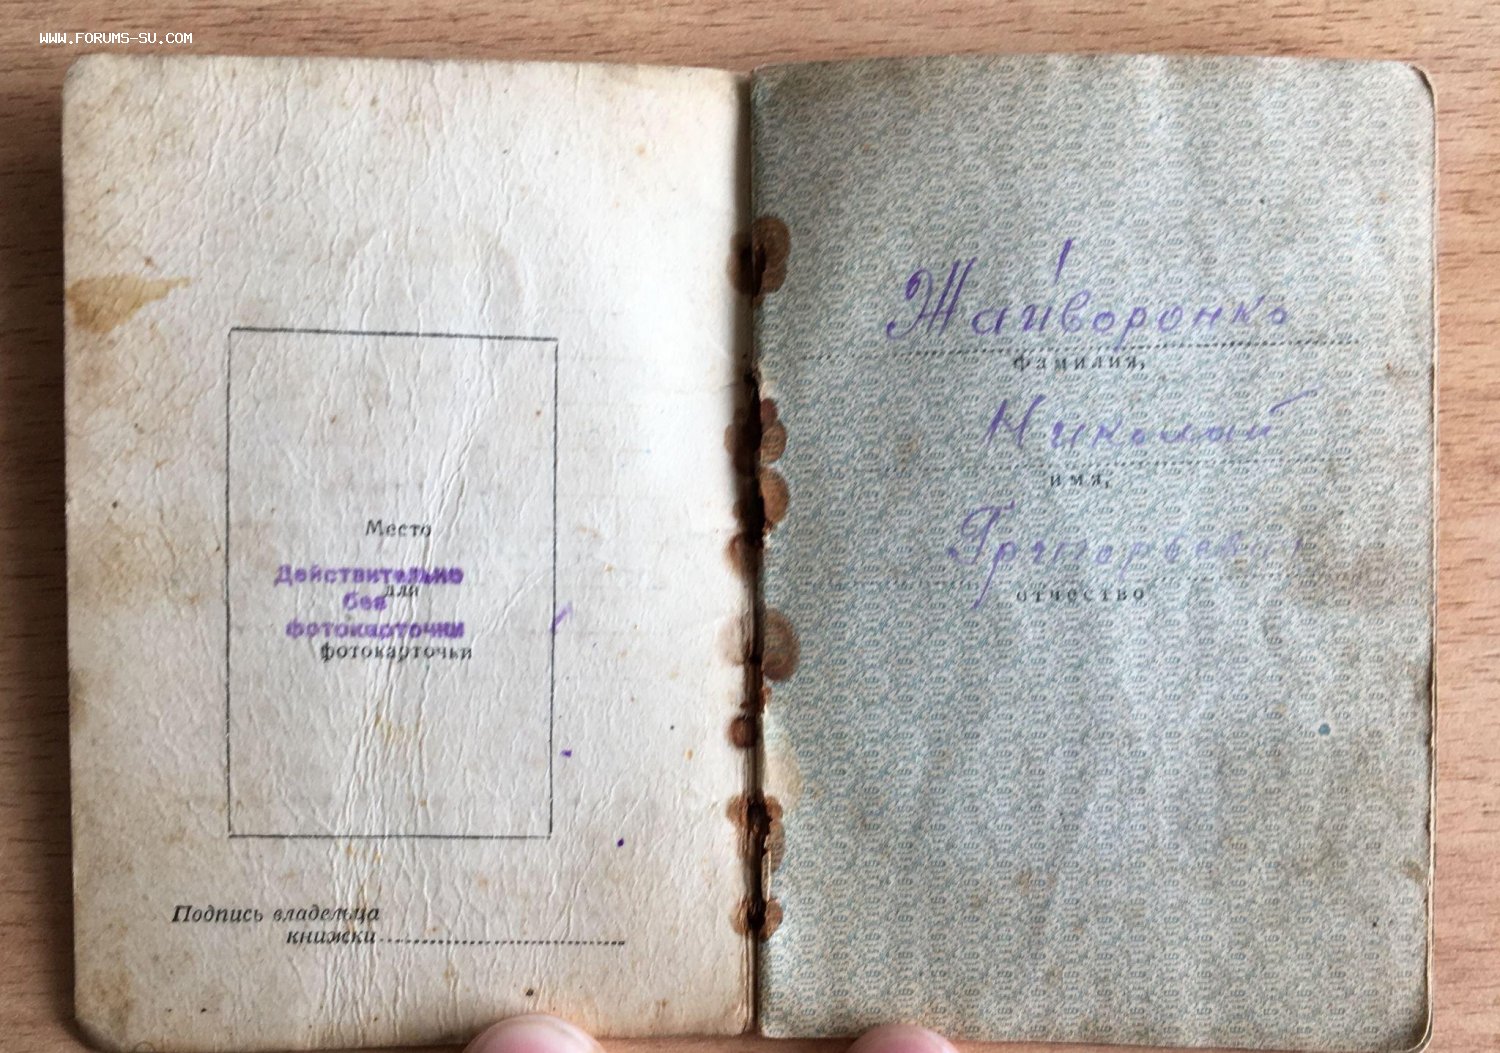 WWW.FORUMS-SU.COM
Место
Действительно
для
без
фотокарточки
фотокарточки
Подпись владельца
книжки
Жайворонко
фамилия,
Николай
имя,
Григорьевич
отчество